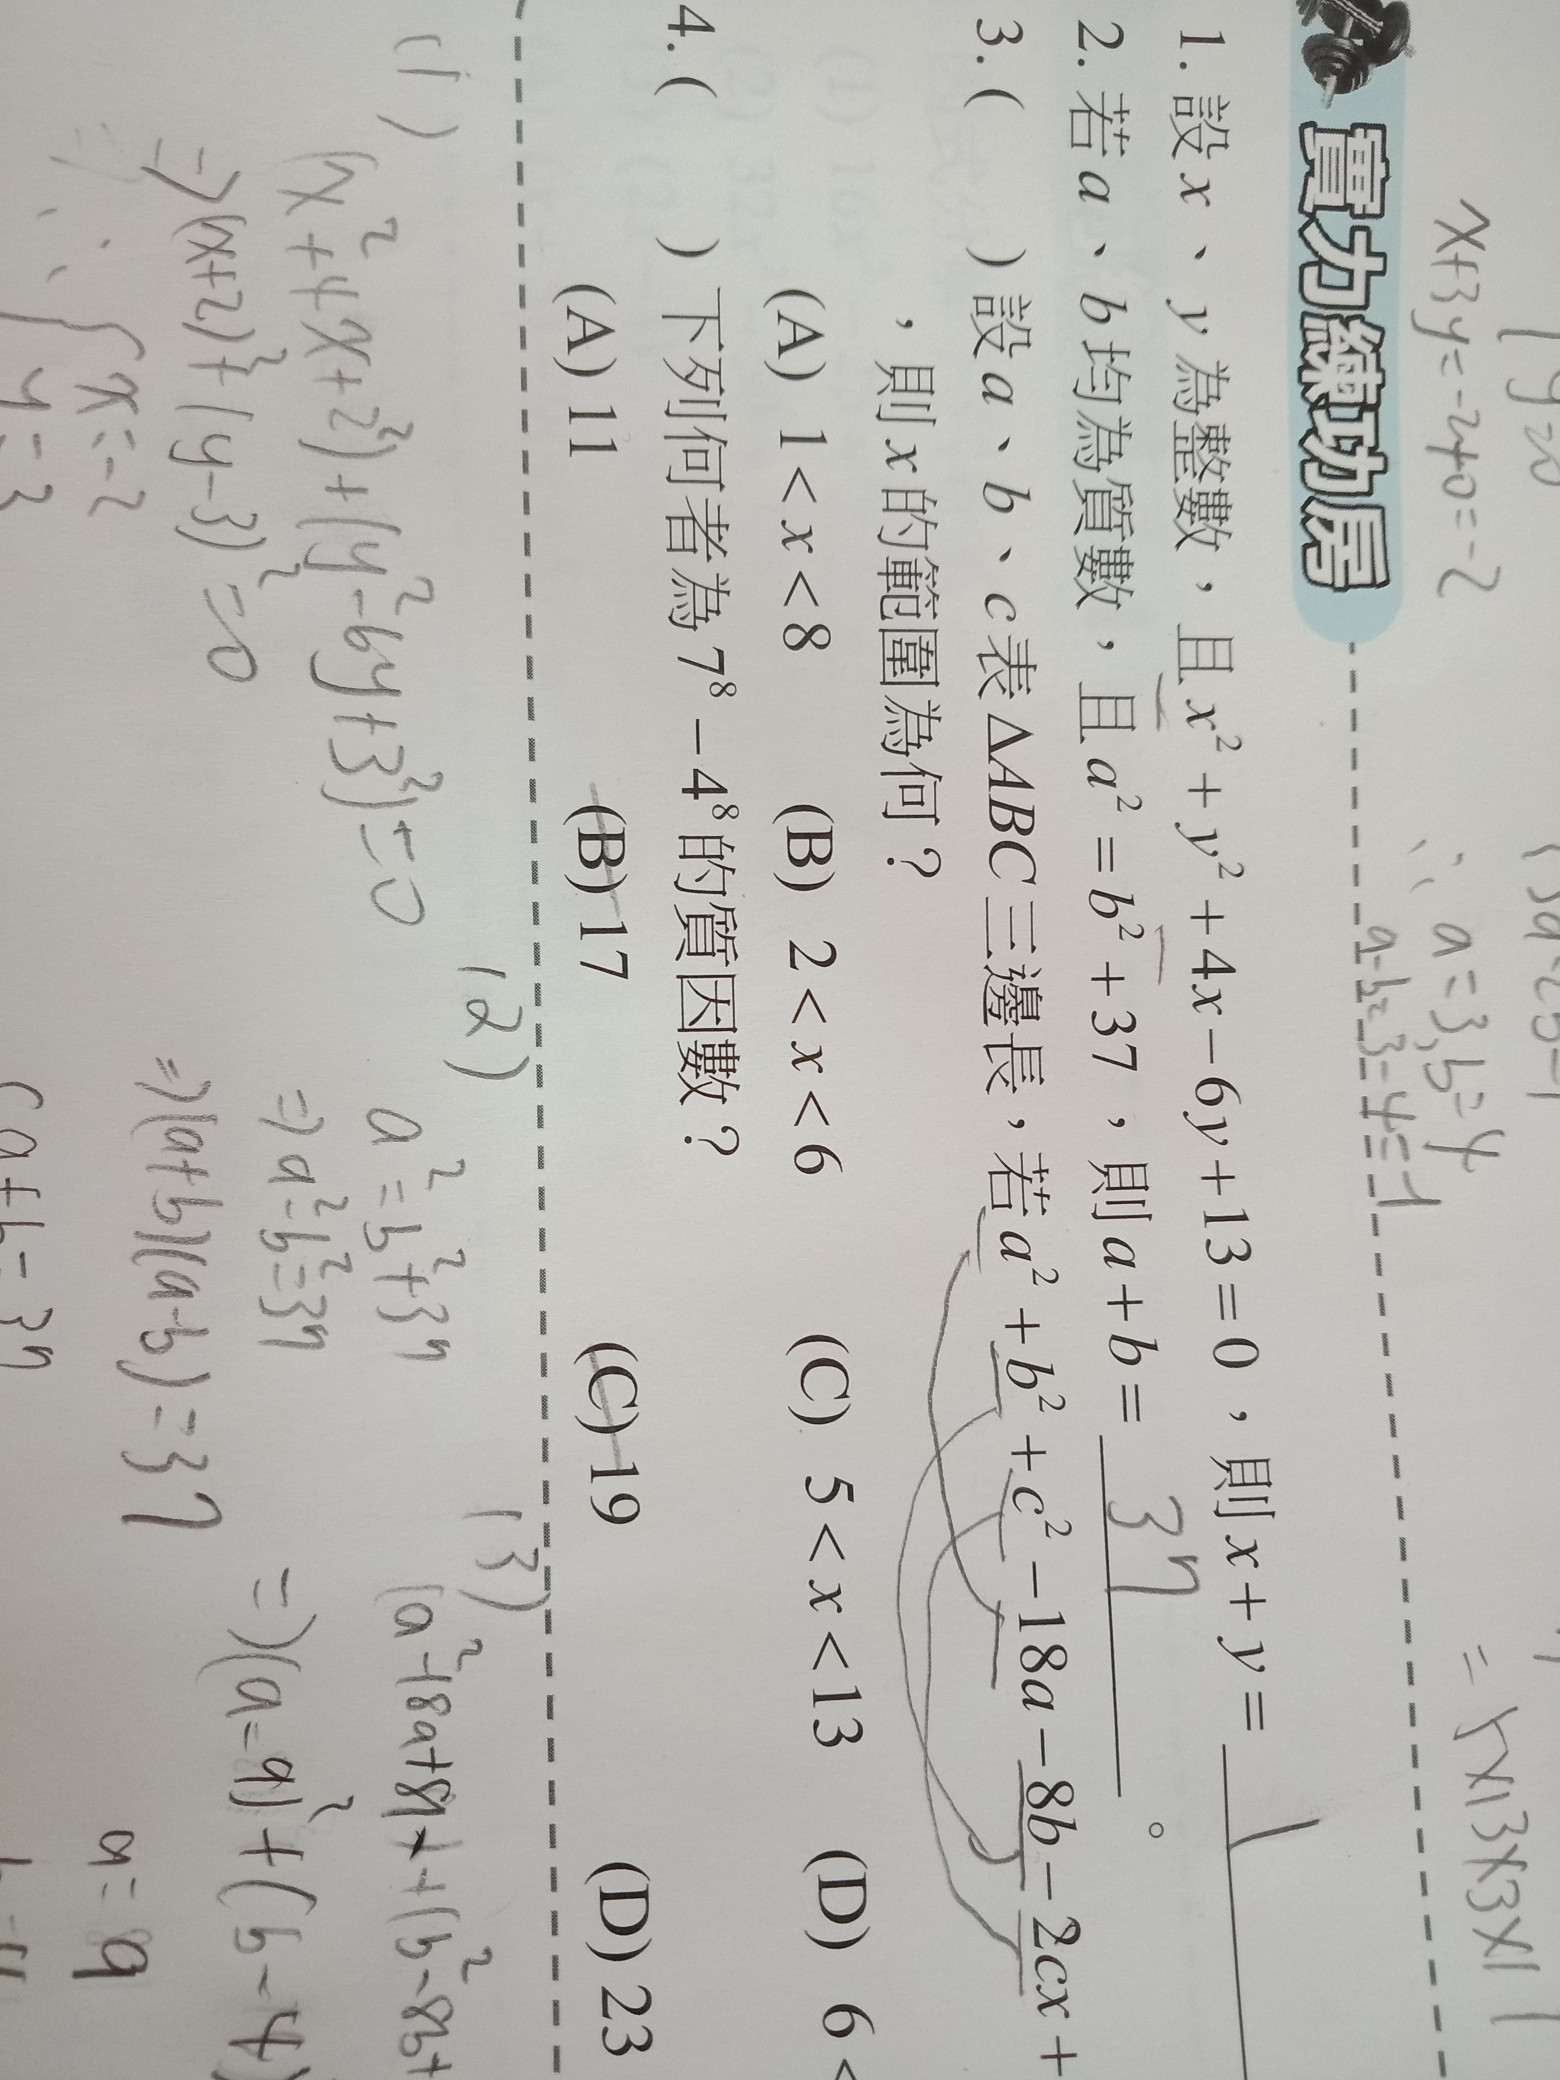 y=0
x+3y=-2+0=-2
∴ a=3, b=4
a-b=3-4=-1
=5×13×3×11
實力練功房
1. 設x、y為整數，且x²+y²+4x-6y+13=0，則x+y= 1
2. 若a、b均為質數，且a²=b²+37，則a+b= 37 。
3. ( ) 設a、b、c表△ABC三邊長，若a²+b²+c²-18a-8b-2cx+
，則x的範圍為何？
(A) 1<x<8 (B) 2<x<6 (C) 5<x<13 (D) 6<
4. ( ) 下列何者為7⁸-4⁸的質因數？
(A) 11 (B) 17 (C) 19 (D) 23
(1)
(x²+4x+2²)+(y²-6y+3²)=0
⇒(x+2)²+(y-3)²=0
∴ { x=-2
y=3
(2)
a²=b²+37
⇒a²-b²=37
⇒(a+b)(a-b)=37
a+b=37
(3)
(a²-18a+81)+(b²-8b+
⇒(a-9)²+(b-4)
a=9